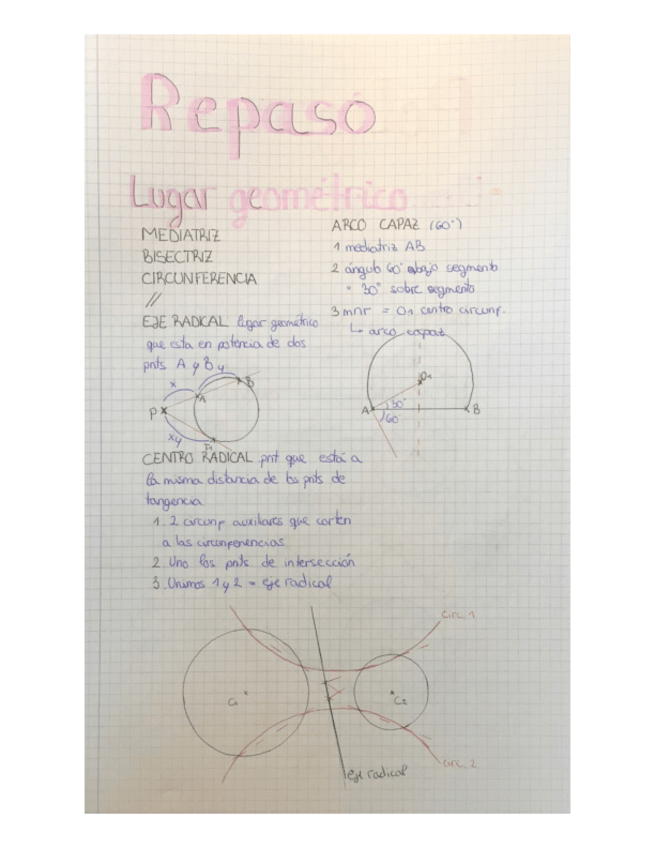 Repaso
Lugar geométrico
MEDIATRIZ
BISECTRIZ
CIRCUNFERENCIA
//
EJE RADICAL lugar geométrico
que esta en potencia de dos
pnts A y B y
x
B
A
P
xy
P1
CENTRO RADICAL pnt que está a
la misma distancia de los pnts de
tangencia
1. 2 circunf auxiliares que corten
a las circunferencias
2. Uno los pnts de intersección
3. Unimos 1 y 2 = eje radical
ARCO CAPAZ (60°)
1 mediatriz AB
2 ángulo 60° abajo segmento
" 30° sobre segmento
3 mnr = O1 centro circunf.
↳ arco capaz
O1
A
30°
B
60°
circ. 1
C1
C2
circ. 2
eje radical